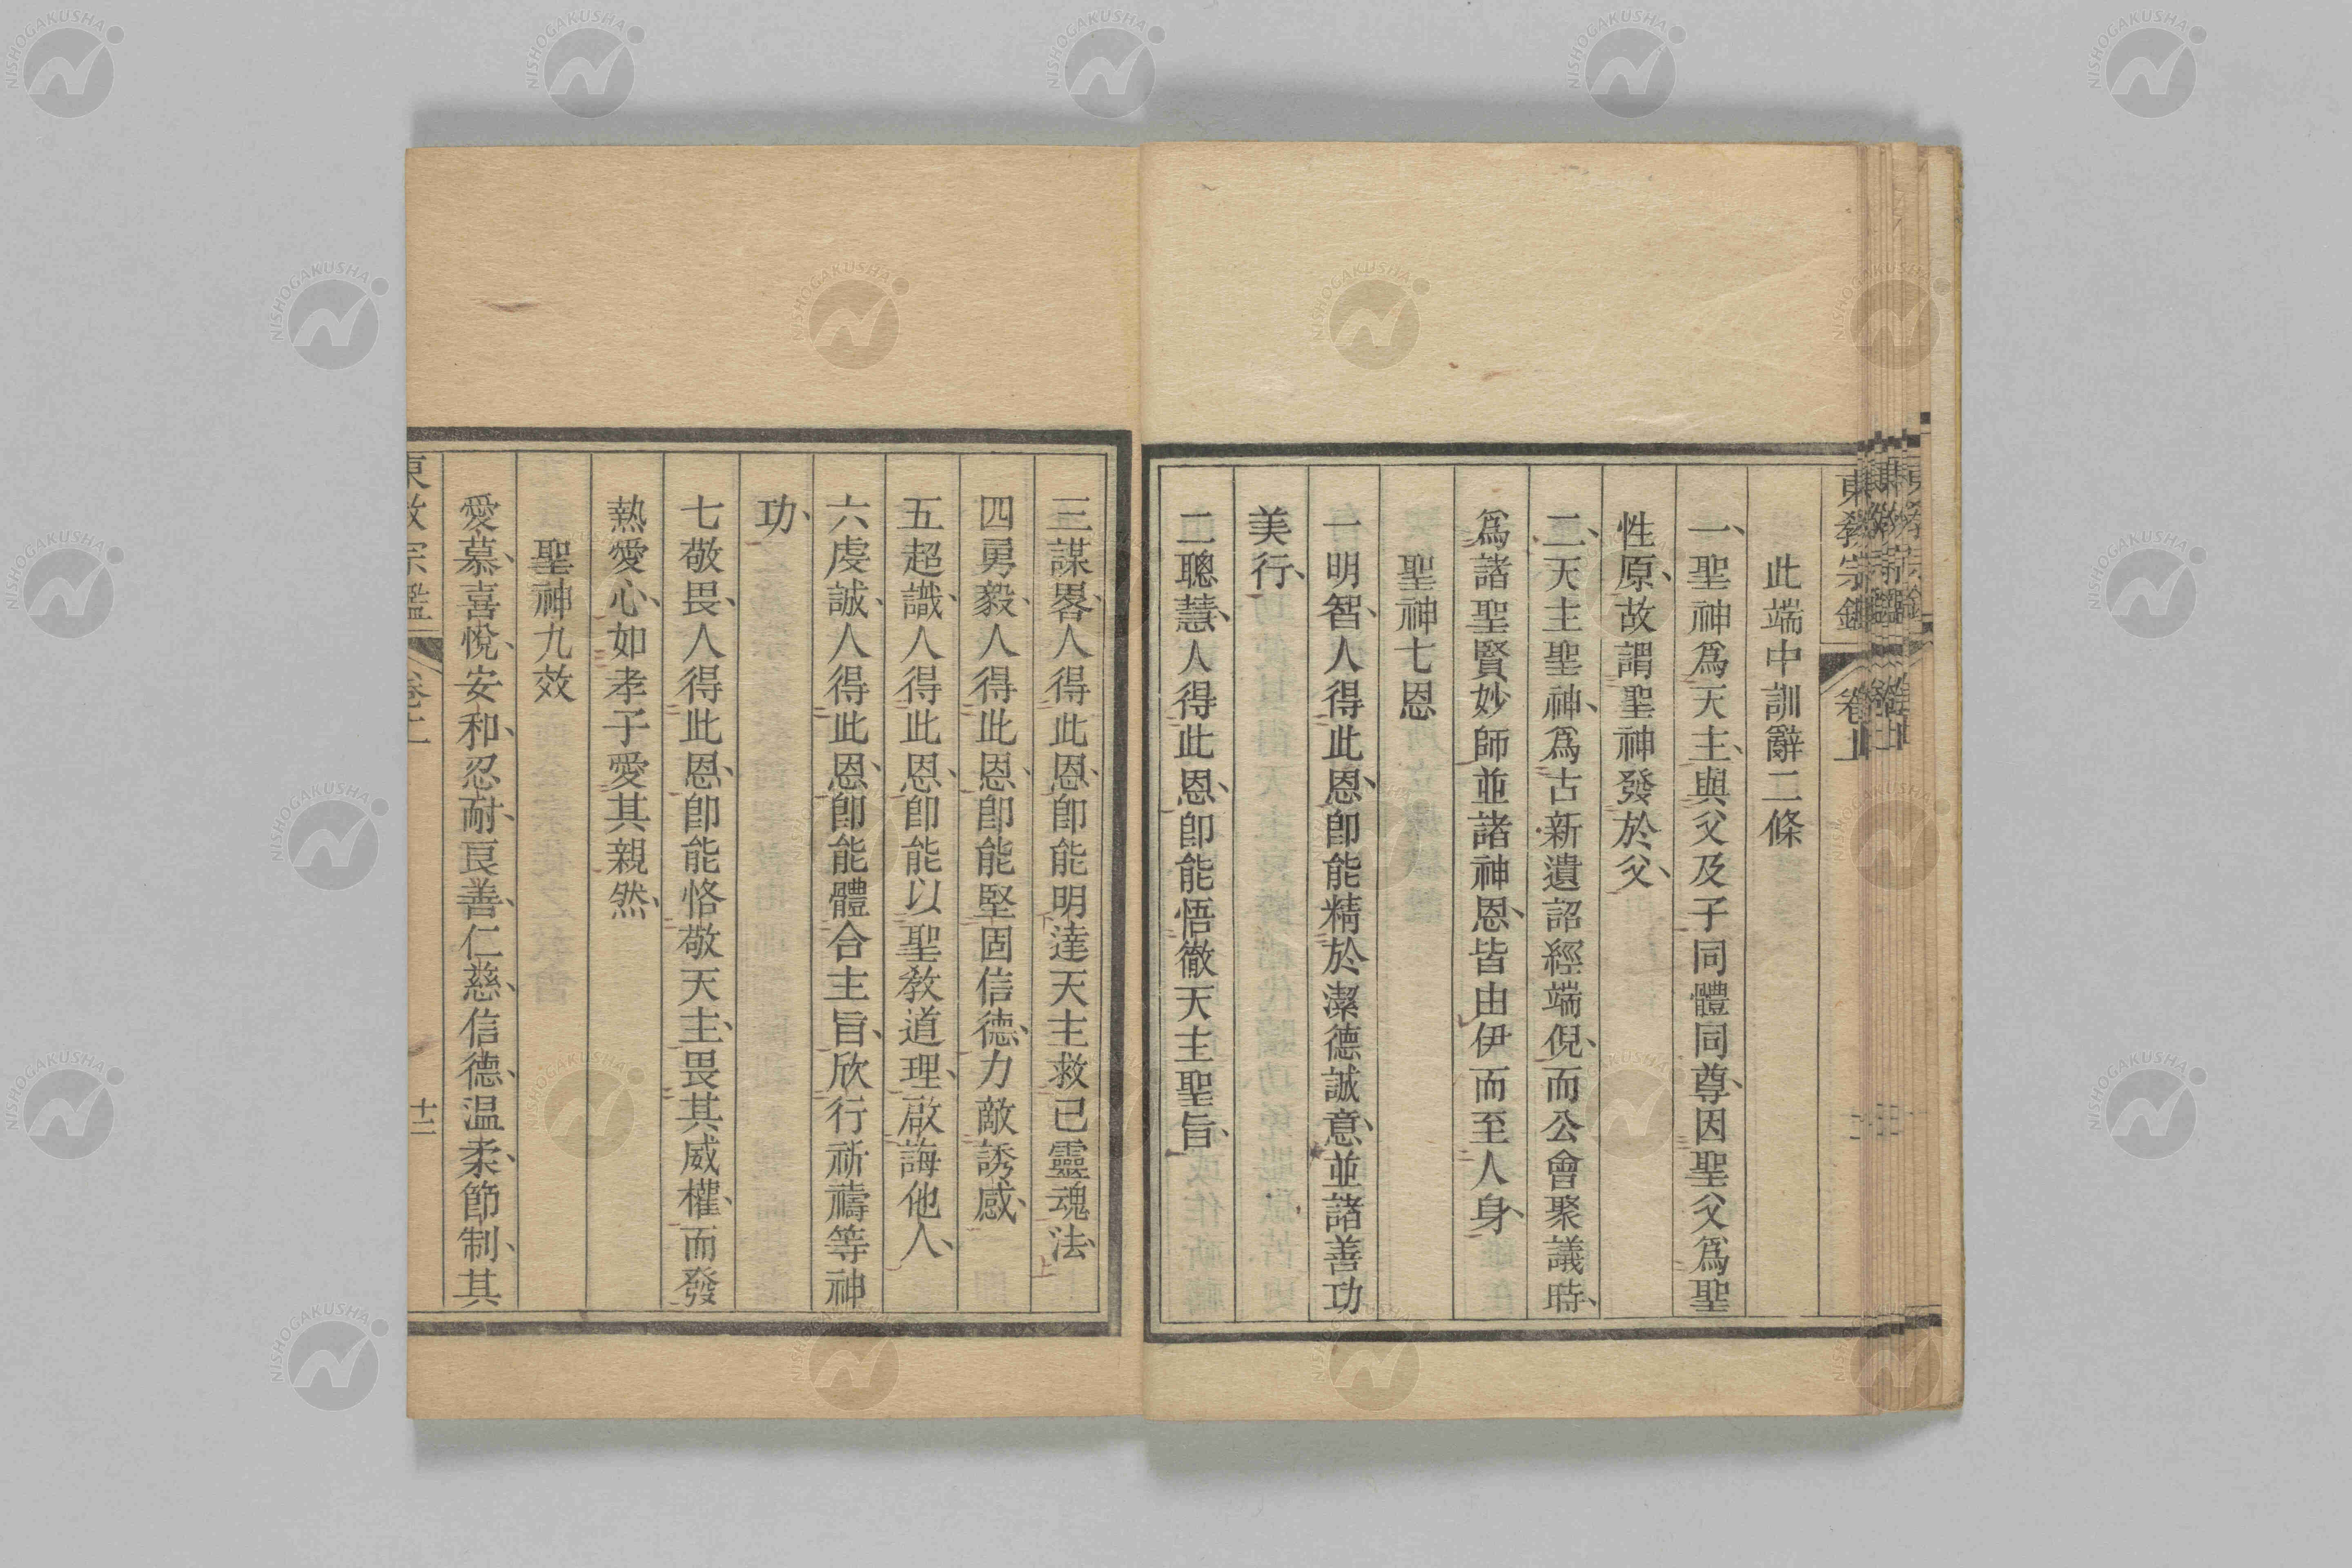 東教宗鑑 卷上
此端中訓辭二條
一、聖神爲天主、與父及子同體同尊、因聖父爲聖
性原、故謂聖神發於父、
二、天主聖神、爲古新遺詔經端倪、而公會聚議時、
爲諸聖賢妙師並諸神恩、皆由伊而至人身、
聖神七恩
一明智、人得此恩、卽能精於潔德誠意、並諸善功
美行、
二聰慧、人得此恩、卽能悟徹天主聖旨、
三謀畧、人得此恩、卽能明達天主救己靈魂法、
四勇毅、人得此恩、卽能堅固信德、力敵誘感、
五超識、人得此恩、卽能以聖敎道理、啟誨他人、
六虔誠、人得此恩、卽能體合主旨、欣行祈禱等神
功、
七敬畏、人得此恩、卽能恪敬天主、畏其威權、而發
熱愛心、如孝子愛其親然、
聖神九效
愛慕、喜悅、安和、忍耐、良善、仁慈、信德、温柔、節制、其
東教宗鑑 卷上 十二
NISHOGAKUSHA